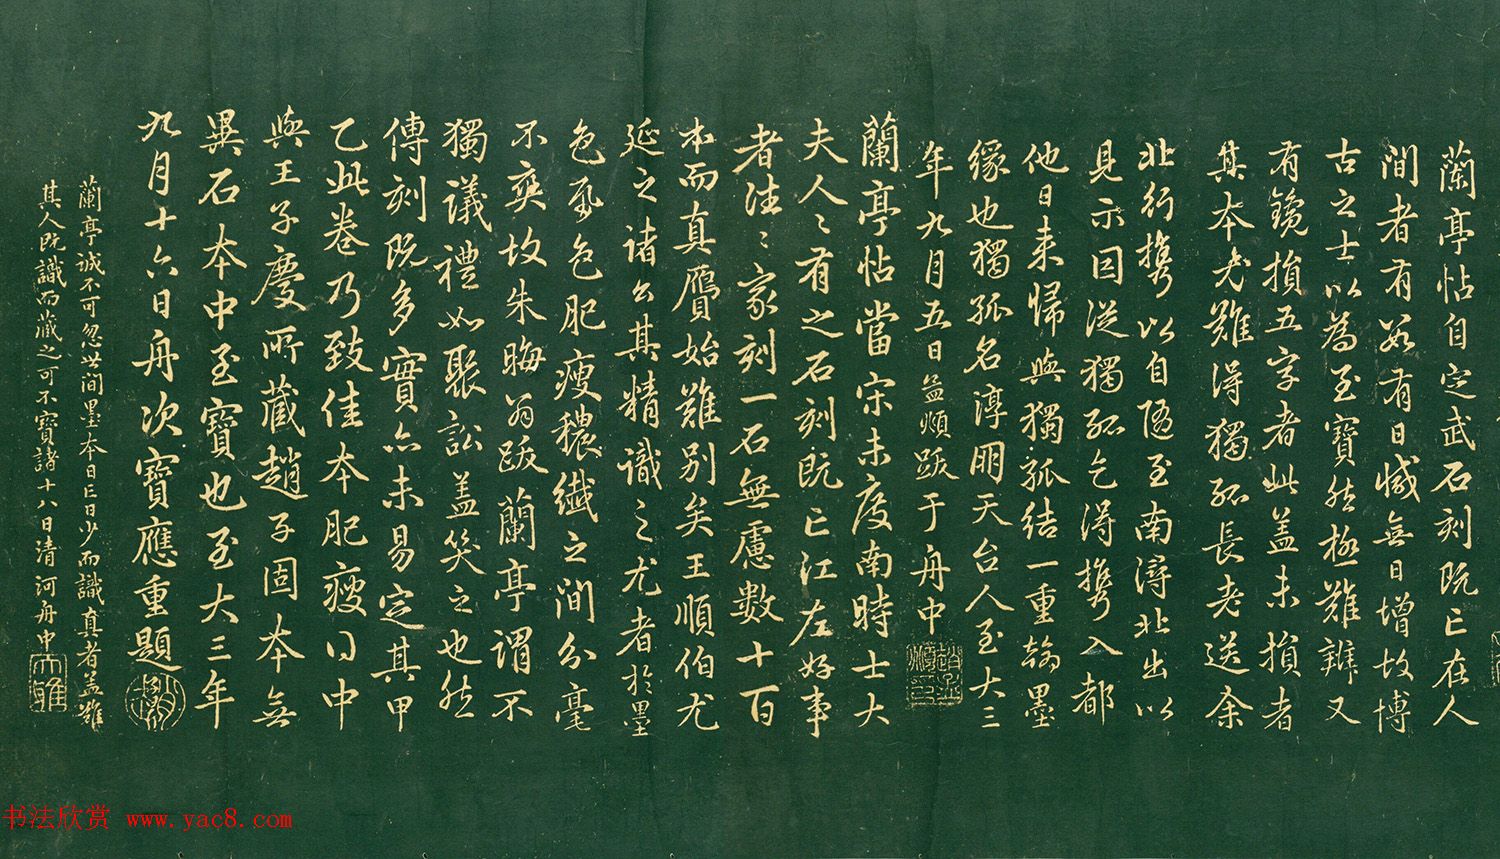 蘭亭帖自定武石刻既亡在人
間者有數有日減無日增故博
古之士以為至寶然極難辨又
有鐫損五字者此蓋未損者
其本尤難得獨孤長老送余
北行攜以自隨至南潯北出以
見示因從獨孤乞得攜入都
他日來歸與獨孤結一重翰墨
緣也獨孤名淳朋天台人至大三
年九月五日孟頫跋于舟中
蘭亭帖當宋未度南時士大
夫人〻有之石刻既亡江左好事
者往〻家刻一石無慮數十百
本而真贗始難別矣王順伯尤
延之諸公其精識之尤者於墨
色氣色肥瘦穠纖之間分毫
不爽故朱晦翁跋蘭亭謂不
獨議禮如聚訟蓋笑之也然
傳刻既多實亦未易定其甲
乙此卷乃致佳本肥瘦得中
與王子慶所藏趙子固本無
異石本中至寶也至大三年
九月十六日舟次寶應重題
蘭亭誠不可忽世間墨本日亡日少而識真者蓋難
其人既識而藏之可不寶諸十八日清河舟中
书法欣赏 www.yac8.com